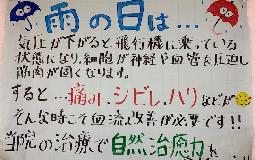 雨の日は…
気圧が下がると、飛行機に乗っている
状態になり、細胞が神経や血管を圧迫し
筋肉が固くなります。
すると…痛み、シビレ、ハリなどが
そんな時こそ血流改善が必要です!!
当院の治療で自然治癒力を